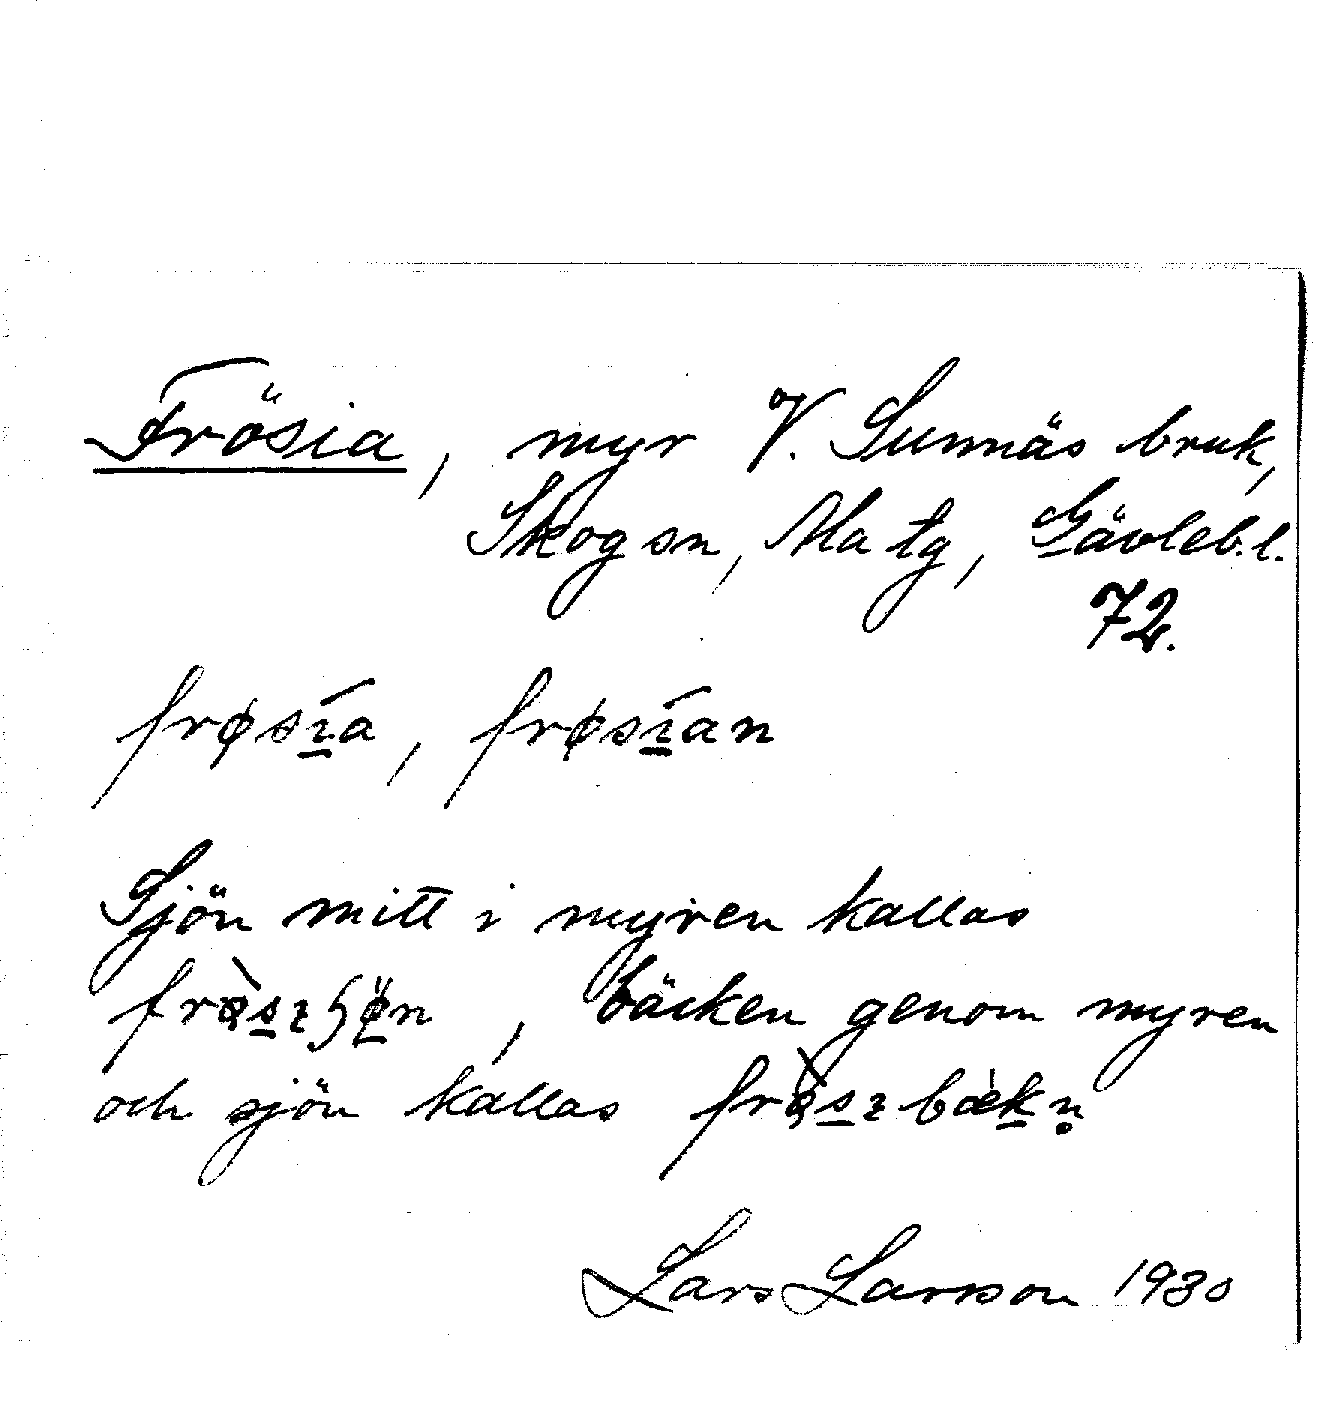 Frösia, myr V. Sunnäs bruk,
Skogsn, Ma tg, Gävleb.l.
72.
frøsı̄a, frøsı̄an
Sjön mitt i myren kallas
bäcken genom myren
och sjön kallas
Lars Larsson 1930